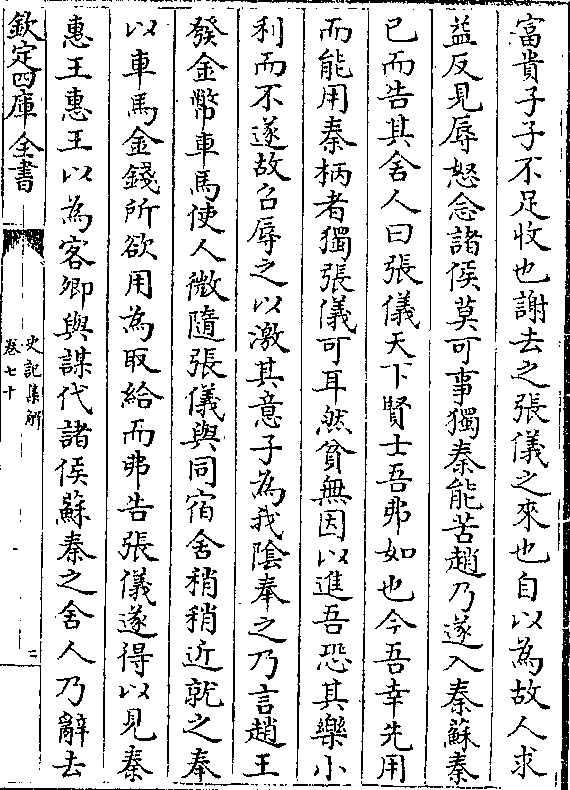 富貴子子不足收也謝去之張儀之來也自以為故人求
益反見辱怒念諸侯莫可事獨秦能苦趙乃遂入秦蘇秦
已而告其舍人曰張儀天下賢士吾弗如也今吾幸先用
而能用秦柄者獨張儀可耳然貧無因以進吾恐其樂小
利而不遂故召辱之以激其意子為我陰奉之乃言趙王
發金幣車馬使人微隨張儀與同宿舍稍稍近就之奉
以車馬金錢所欲用為取給而弗告張儀遂得以見秦
惠王惠王以為客卿與謀伐諸侯蘇秦之舍人乃辭去
欽定四庫全書
史記集解
卷七十
二